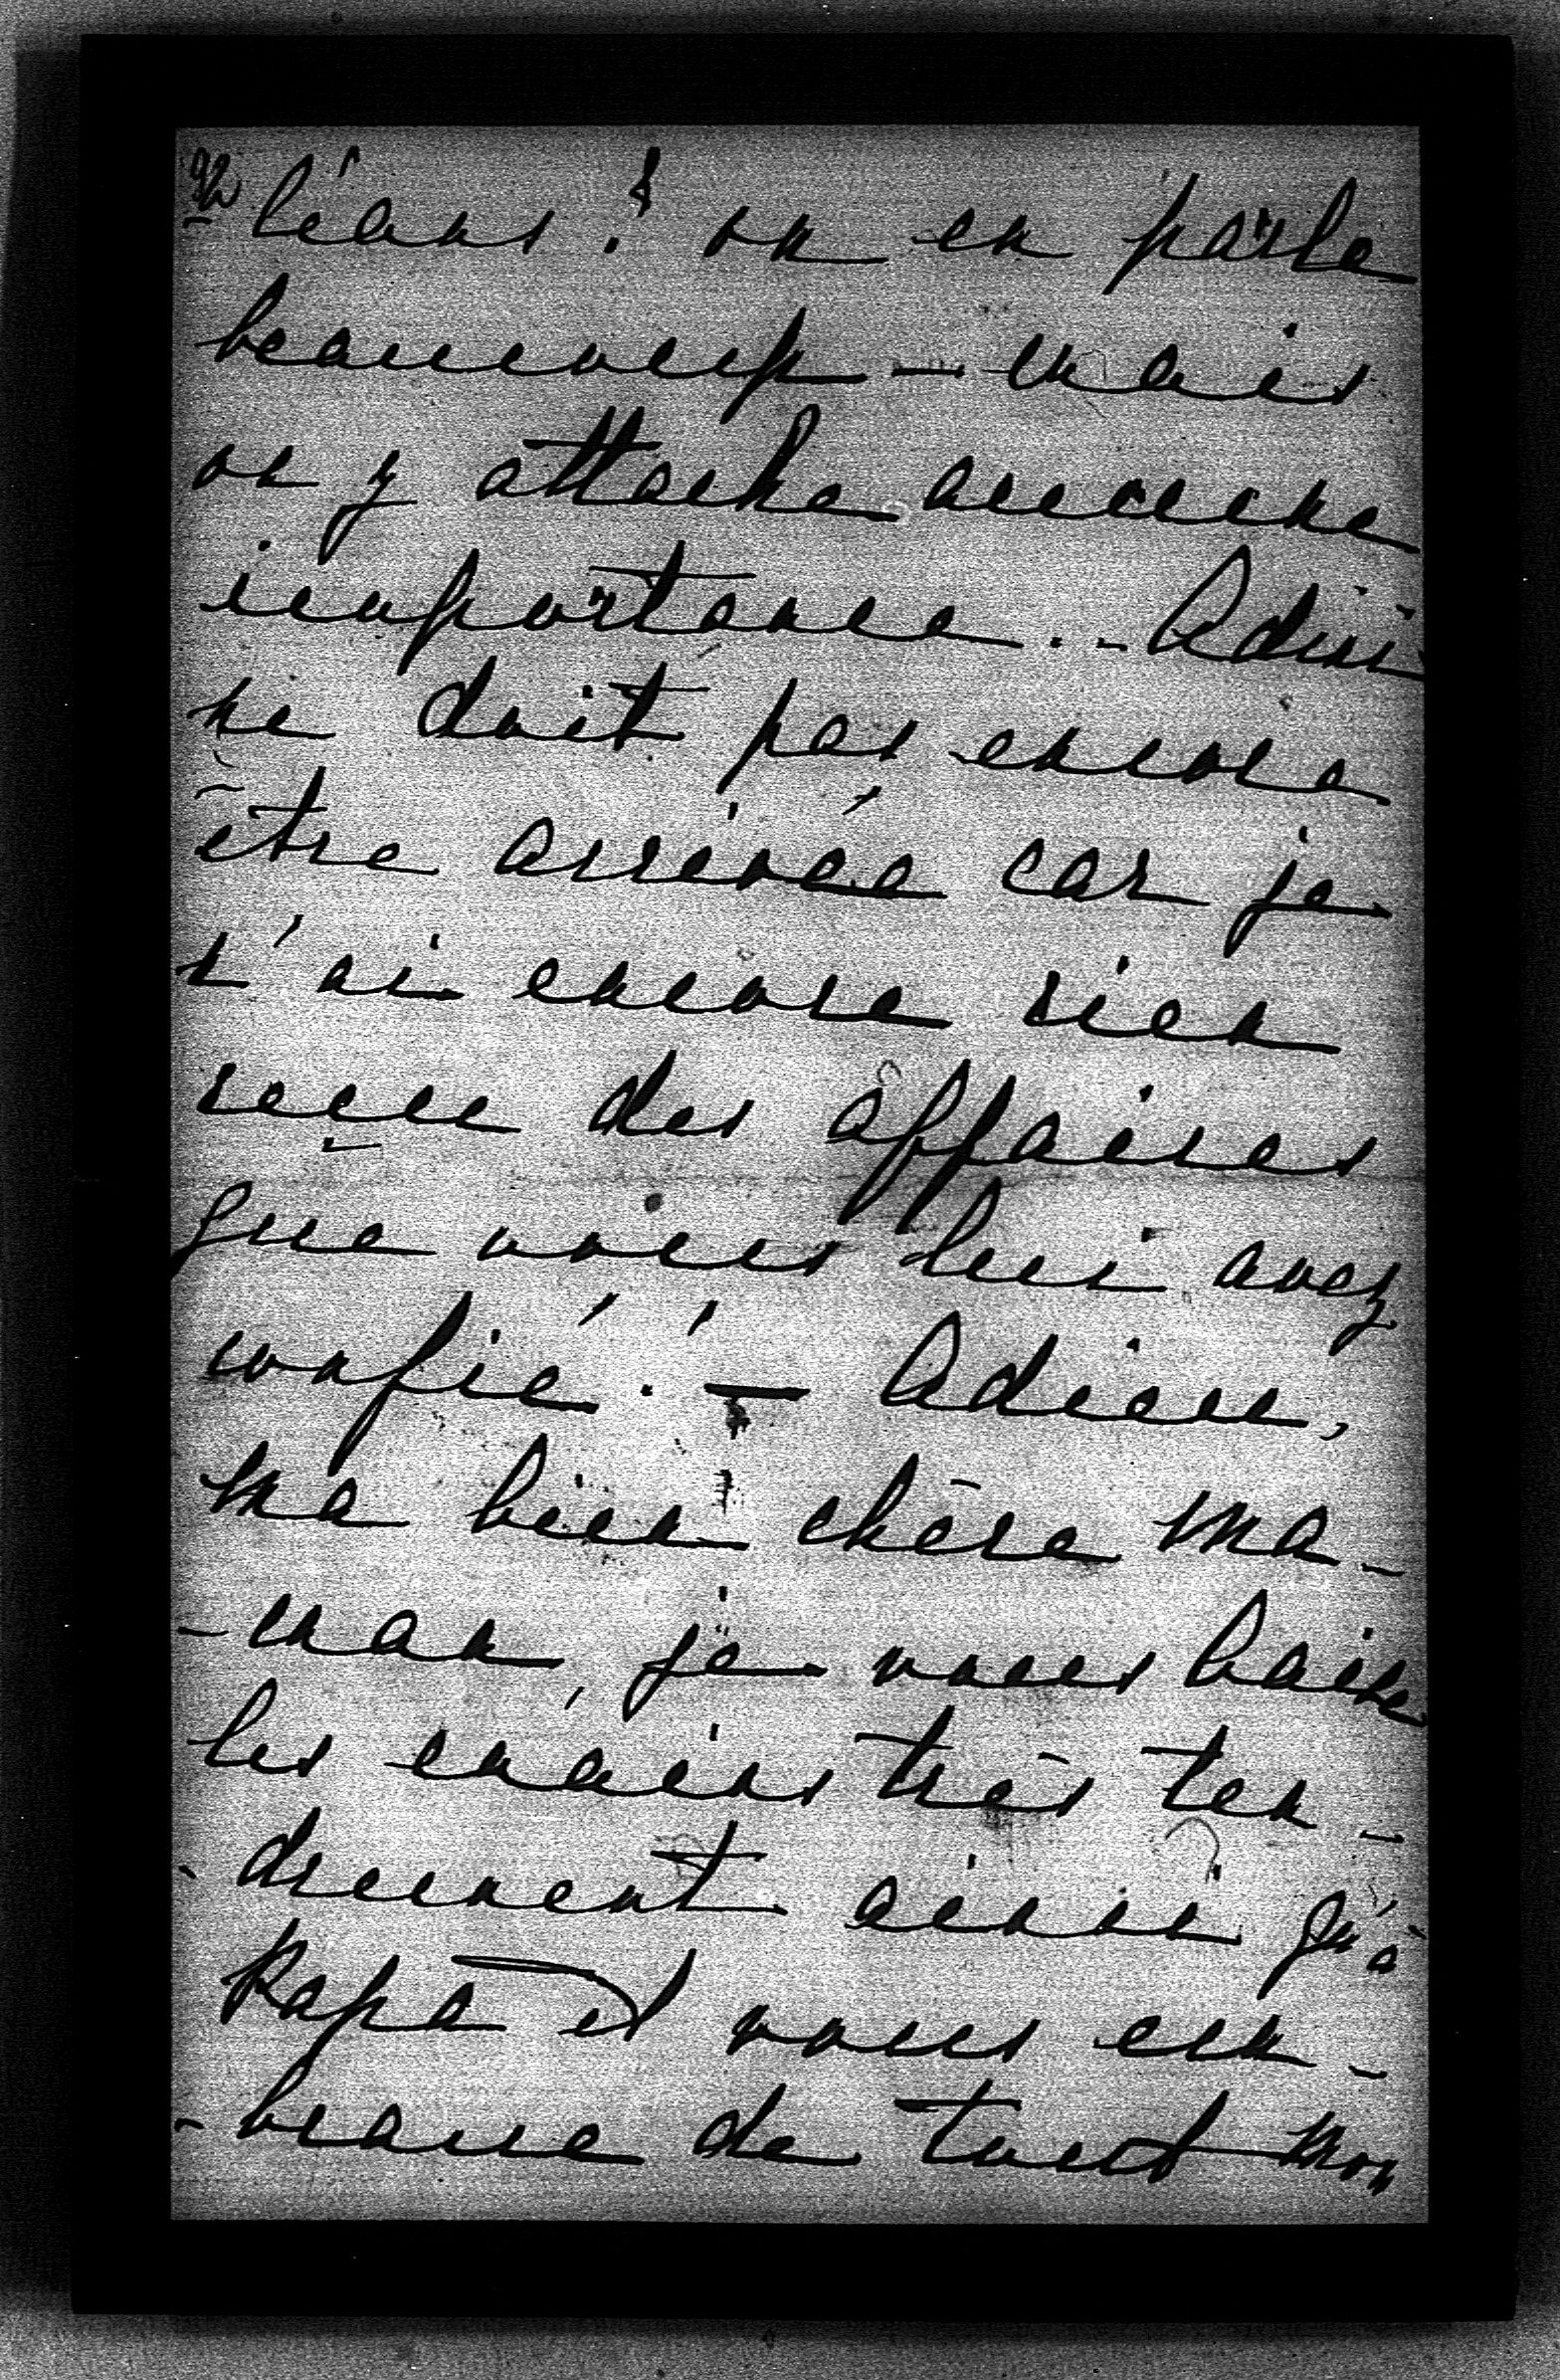 léans! on en parle
beaucoup — mais
on y attache aucune
importance... Adini
ne doit pas encore
être arrivée car je
n'ai encore rien
reçue des affaires
que vous lui avez
confié. — Adieu,
ma bien chère ma-
-man, je vous baise
les mains très ten-
-drement ainsi qu'à
Papa et vous em-
-brasse de tout mon